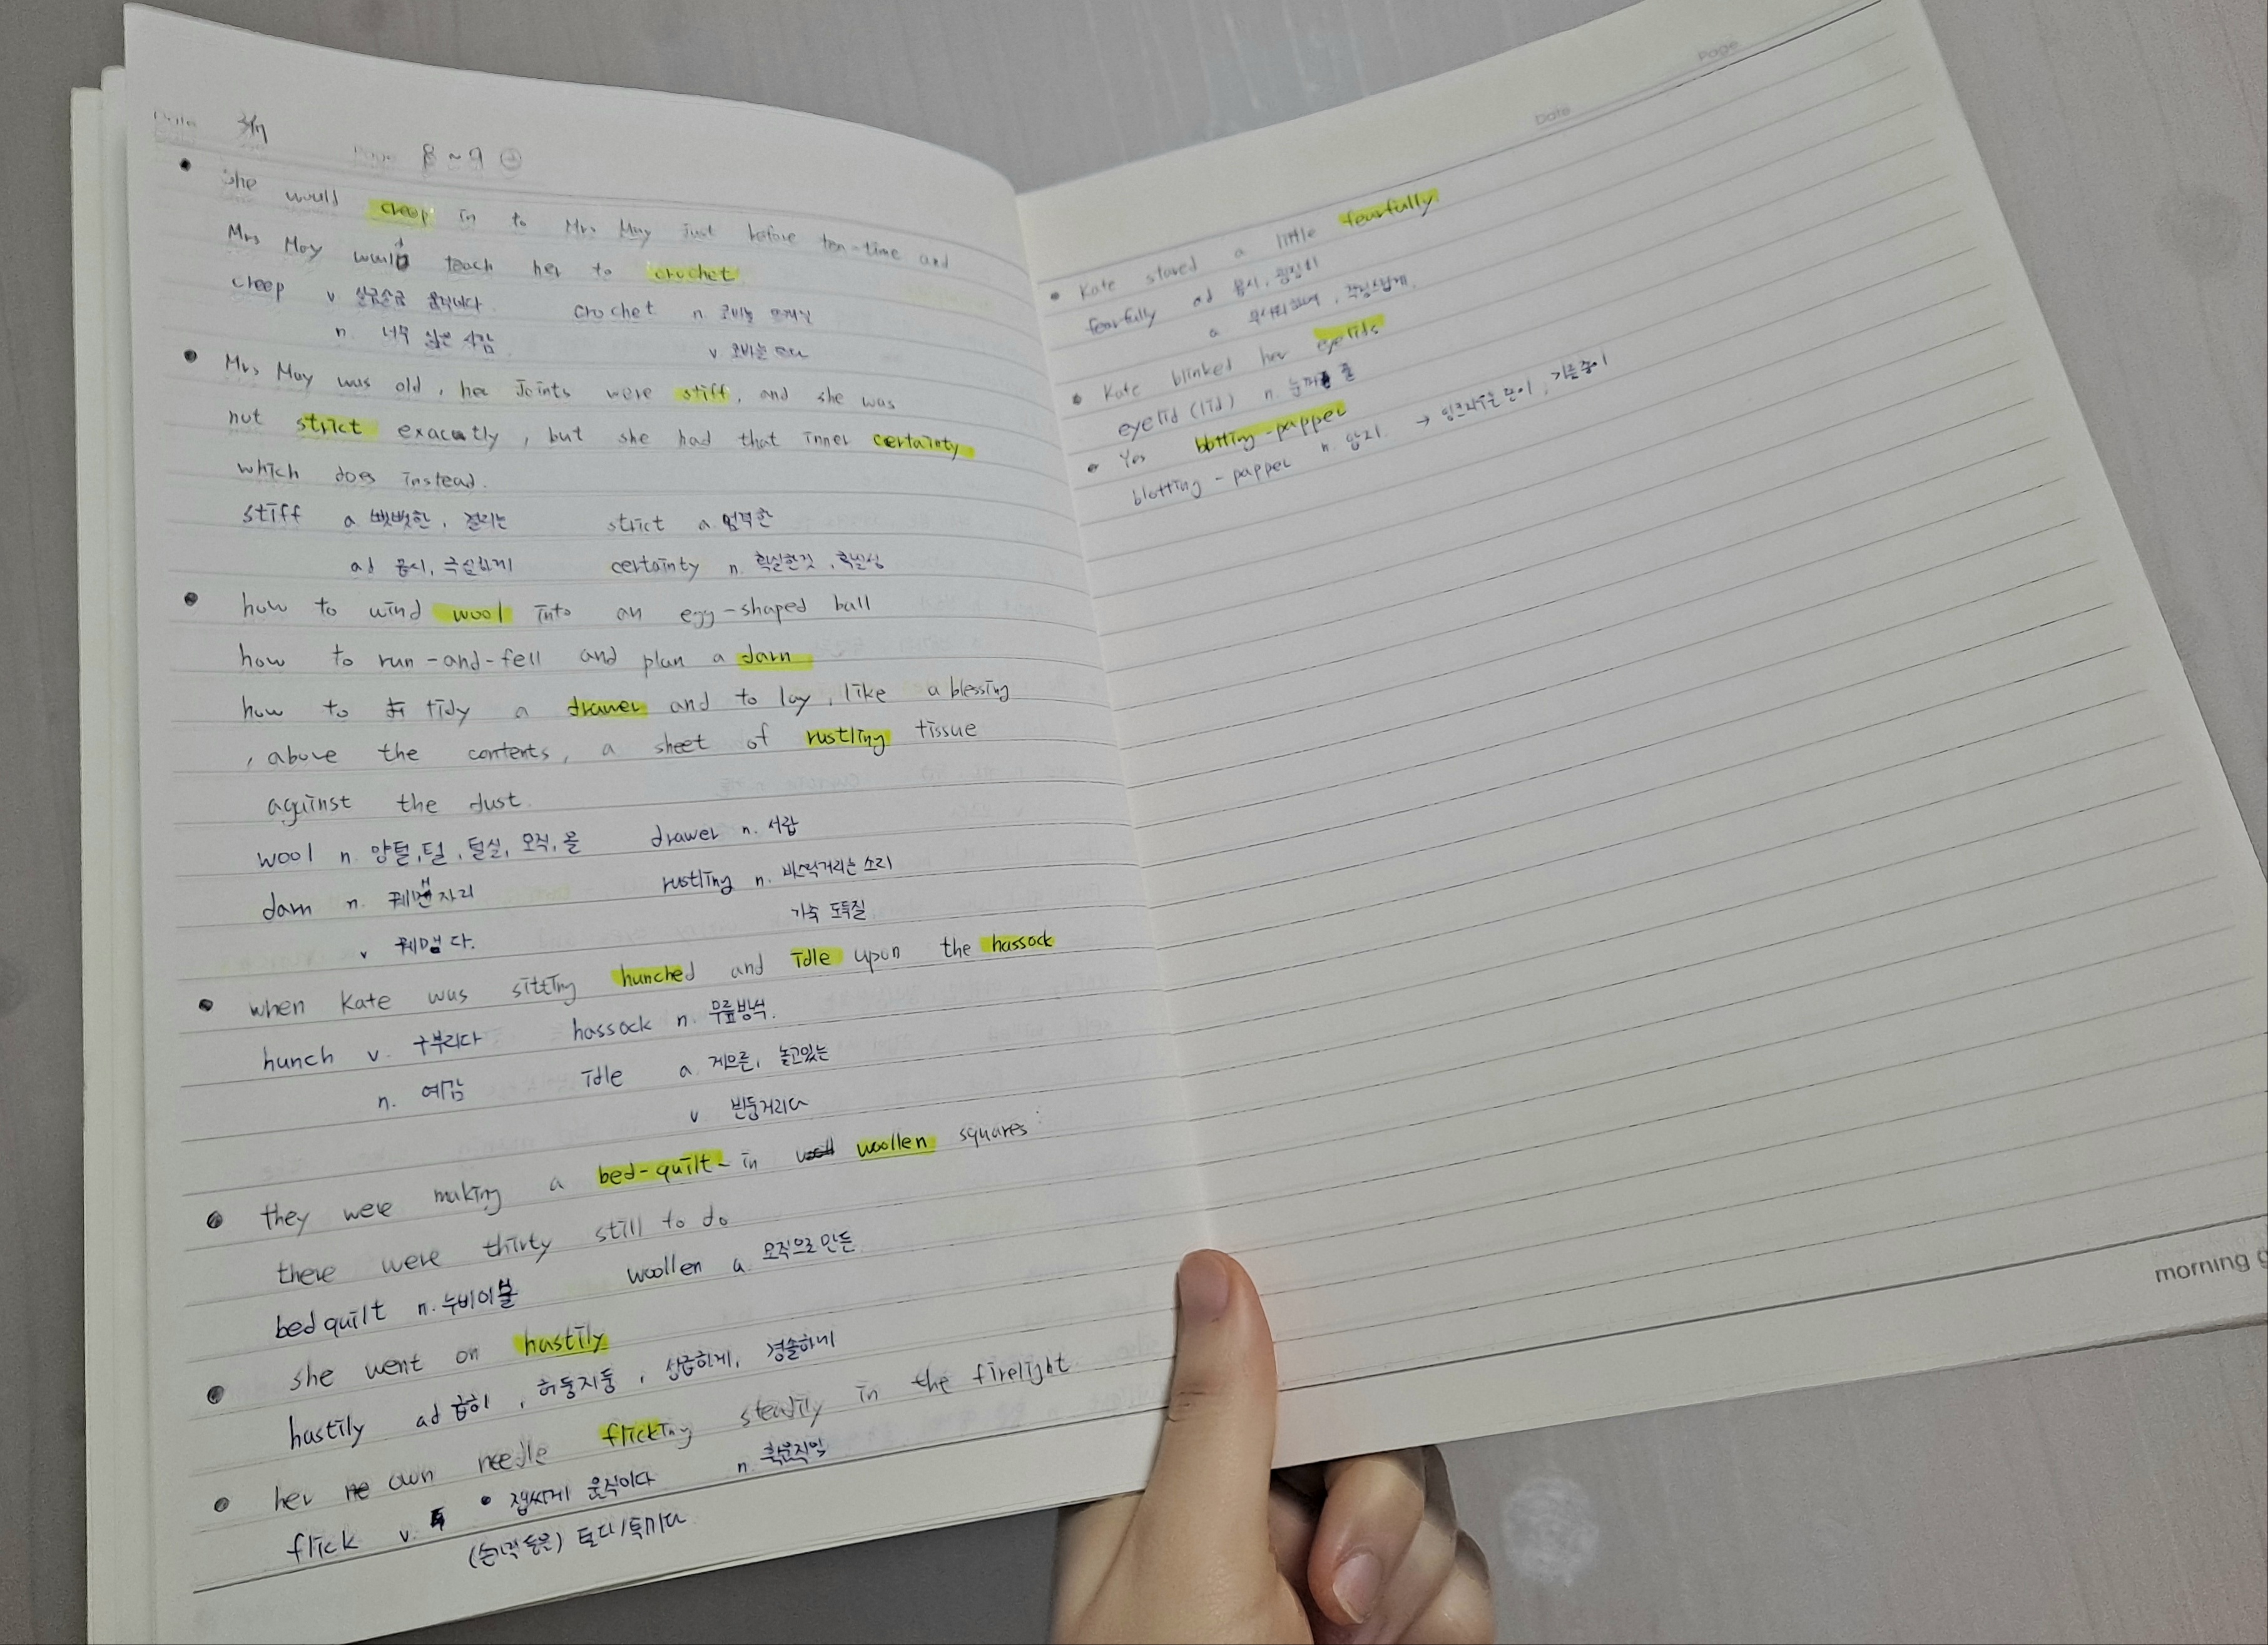 Date 3/7 Page 8 ~ 9
she would creep in to Mrs May just before tea-time and
Mrs May would teach her to crochet
creep v 살금살금 움직이다. crochet n. 코바늘 뜨개질
n. 너무 싫은 사람 v 코바늘 뜨다
Mrs May was old, her Joints were stiff, and she was
not strict exactly, but she had that inner certainty
which does instead.
stiff a 뻣뻣한, 결리는 strict a 엄격한
ad 몹시, 극심하게 certainty n. 확실한것, 확실성
how to wind wool into an egg-shaped ball
how to run-and-fell and plan a darn
how to tidy a drawer and to lay, like a blessing
, above the contents, a sheet of rustling tissue
against the dust.
wool n. 양털, 털, 털실, 모직, 울 drawer n. 서랍
darn n. 꿰맨 자리 rustling n. 바스락거리는 소리
v 꿰매다. 가축 도둑질
when Kate was sitting hunched and idle upon the hassock
hunch v. 구부리다 hassock n. 무릎방석.
n. 예감 idle a 게으른, 놀고있는
v 빈둥거리다
they were making a bed-quilt- in woollen squares:
there were thirty still to do
bed quilt n. 누비이불 woollen a 모직으로 만든
she went on hastily
hastily ad 급히, 허둥지둥, 성급하게, 경솔하게
her own needle flicking steadily in the firelight
flick v. 잽싸게 움직이다 n. 휙움직임
(손가락 등으로) 튀기다
Date Page
Kate stared a little fearfully
fearfully ad 몹시, 굉장히
a 무서워하며, 걱정스럽게.
Kate blinked her eyelids
eyelid (lid) n. 눈꺼풀
Yes blotting-papper
blotting-papper n. 압지. → 잉크지우는 종이, 기름종이
morning g